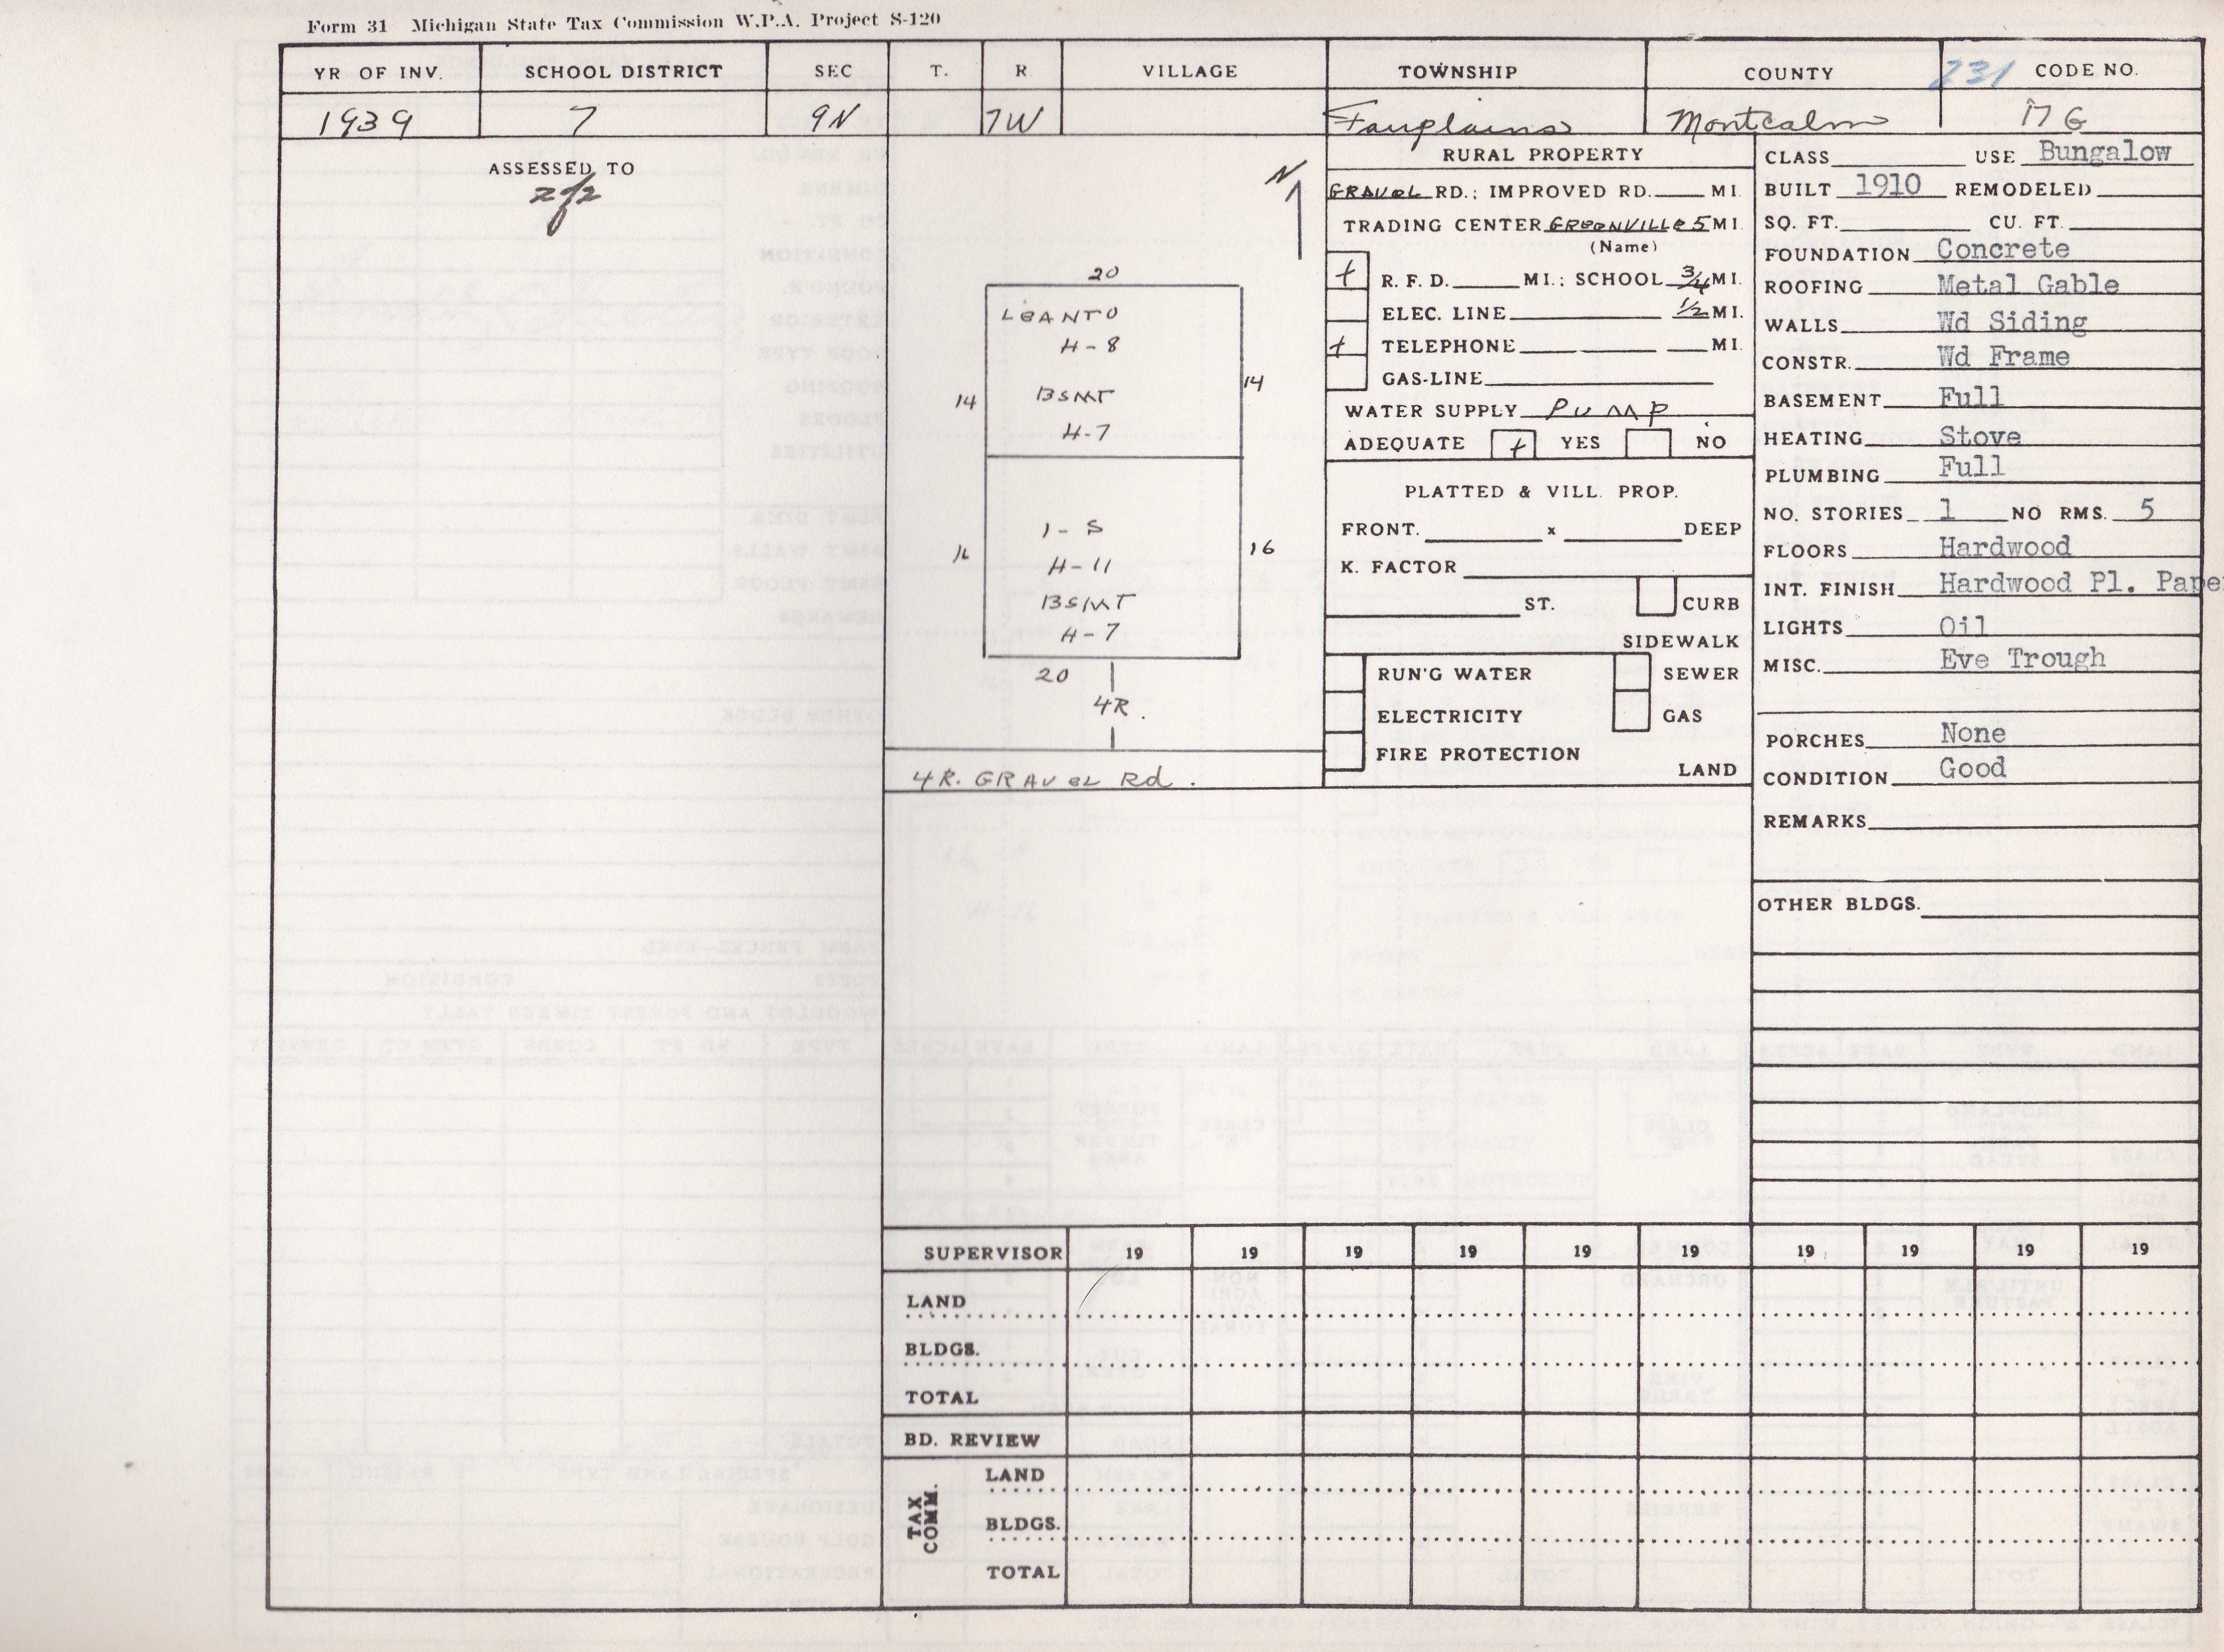 Form 31 Michigan State Tax Commission W.P.A. Project S-120
YR OF INV. SCHOOL DISTRICT SEC T. R VILLAGE TOWNSHIP COUNTY 231 CODE NO.
1939 7 9N 7W Fairplains Montcalm
ASSESSED TO
2 of 2
N
20
LEANTO
H-8
BSMT
H-7
14 14
1-S
H-11
BSMT
H-7
16 16
20
4R.
4R. GRAVEL Rd.
RURAL PROPERTY
GRAVEL RD.; IMPROVED RD. MI.
TRADING CENTER GREENVILLE 5 MI.
(Name)
+ R. F. D. MI.: SCHOOL 3/4 MI.
ELEC. LINE 1/2 MI.
+ TELEPHONE MI.
GAS-LINE
WATER SUPPLY PUMP
ADEQUATE + YES NO
PLATTED & VILL. PROP.
FRONT. x DEEP
K. FACTOR
ST. CURB
SIDEWALK
RUN'G WATER SEWER
ELECTRICITY GAS
FIRE PROTECTION
LAND
CLASS USE Bungalow
BUILT 1910 REMODELED
SQ. FT. CU. FT.
FOUNDATION Concrete
ROOFING Metal Gable
WALLS Wd Siding
CONSTR. Wd Frame
BASEMENT Full
HEATING Stove
PLUMBING Full
NO. STORIES 1 NO RMS. 5
FLOORS Hardwood
INT. FINISH Hardwood Pl. Pape
LIGHTS Oil
MISC. Eve Trough
PORCHES None
CONDITION Good
REMARKS
OTHER BLDGS.
SUPERVISOR 19 19 19 19 19 19 19 19 19 19
LAND
BLDGS.
TOTAL
BD. REVIEW
TAX COMM.
LAND
BLDGS.
TOTAL